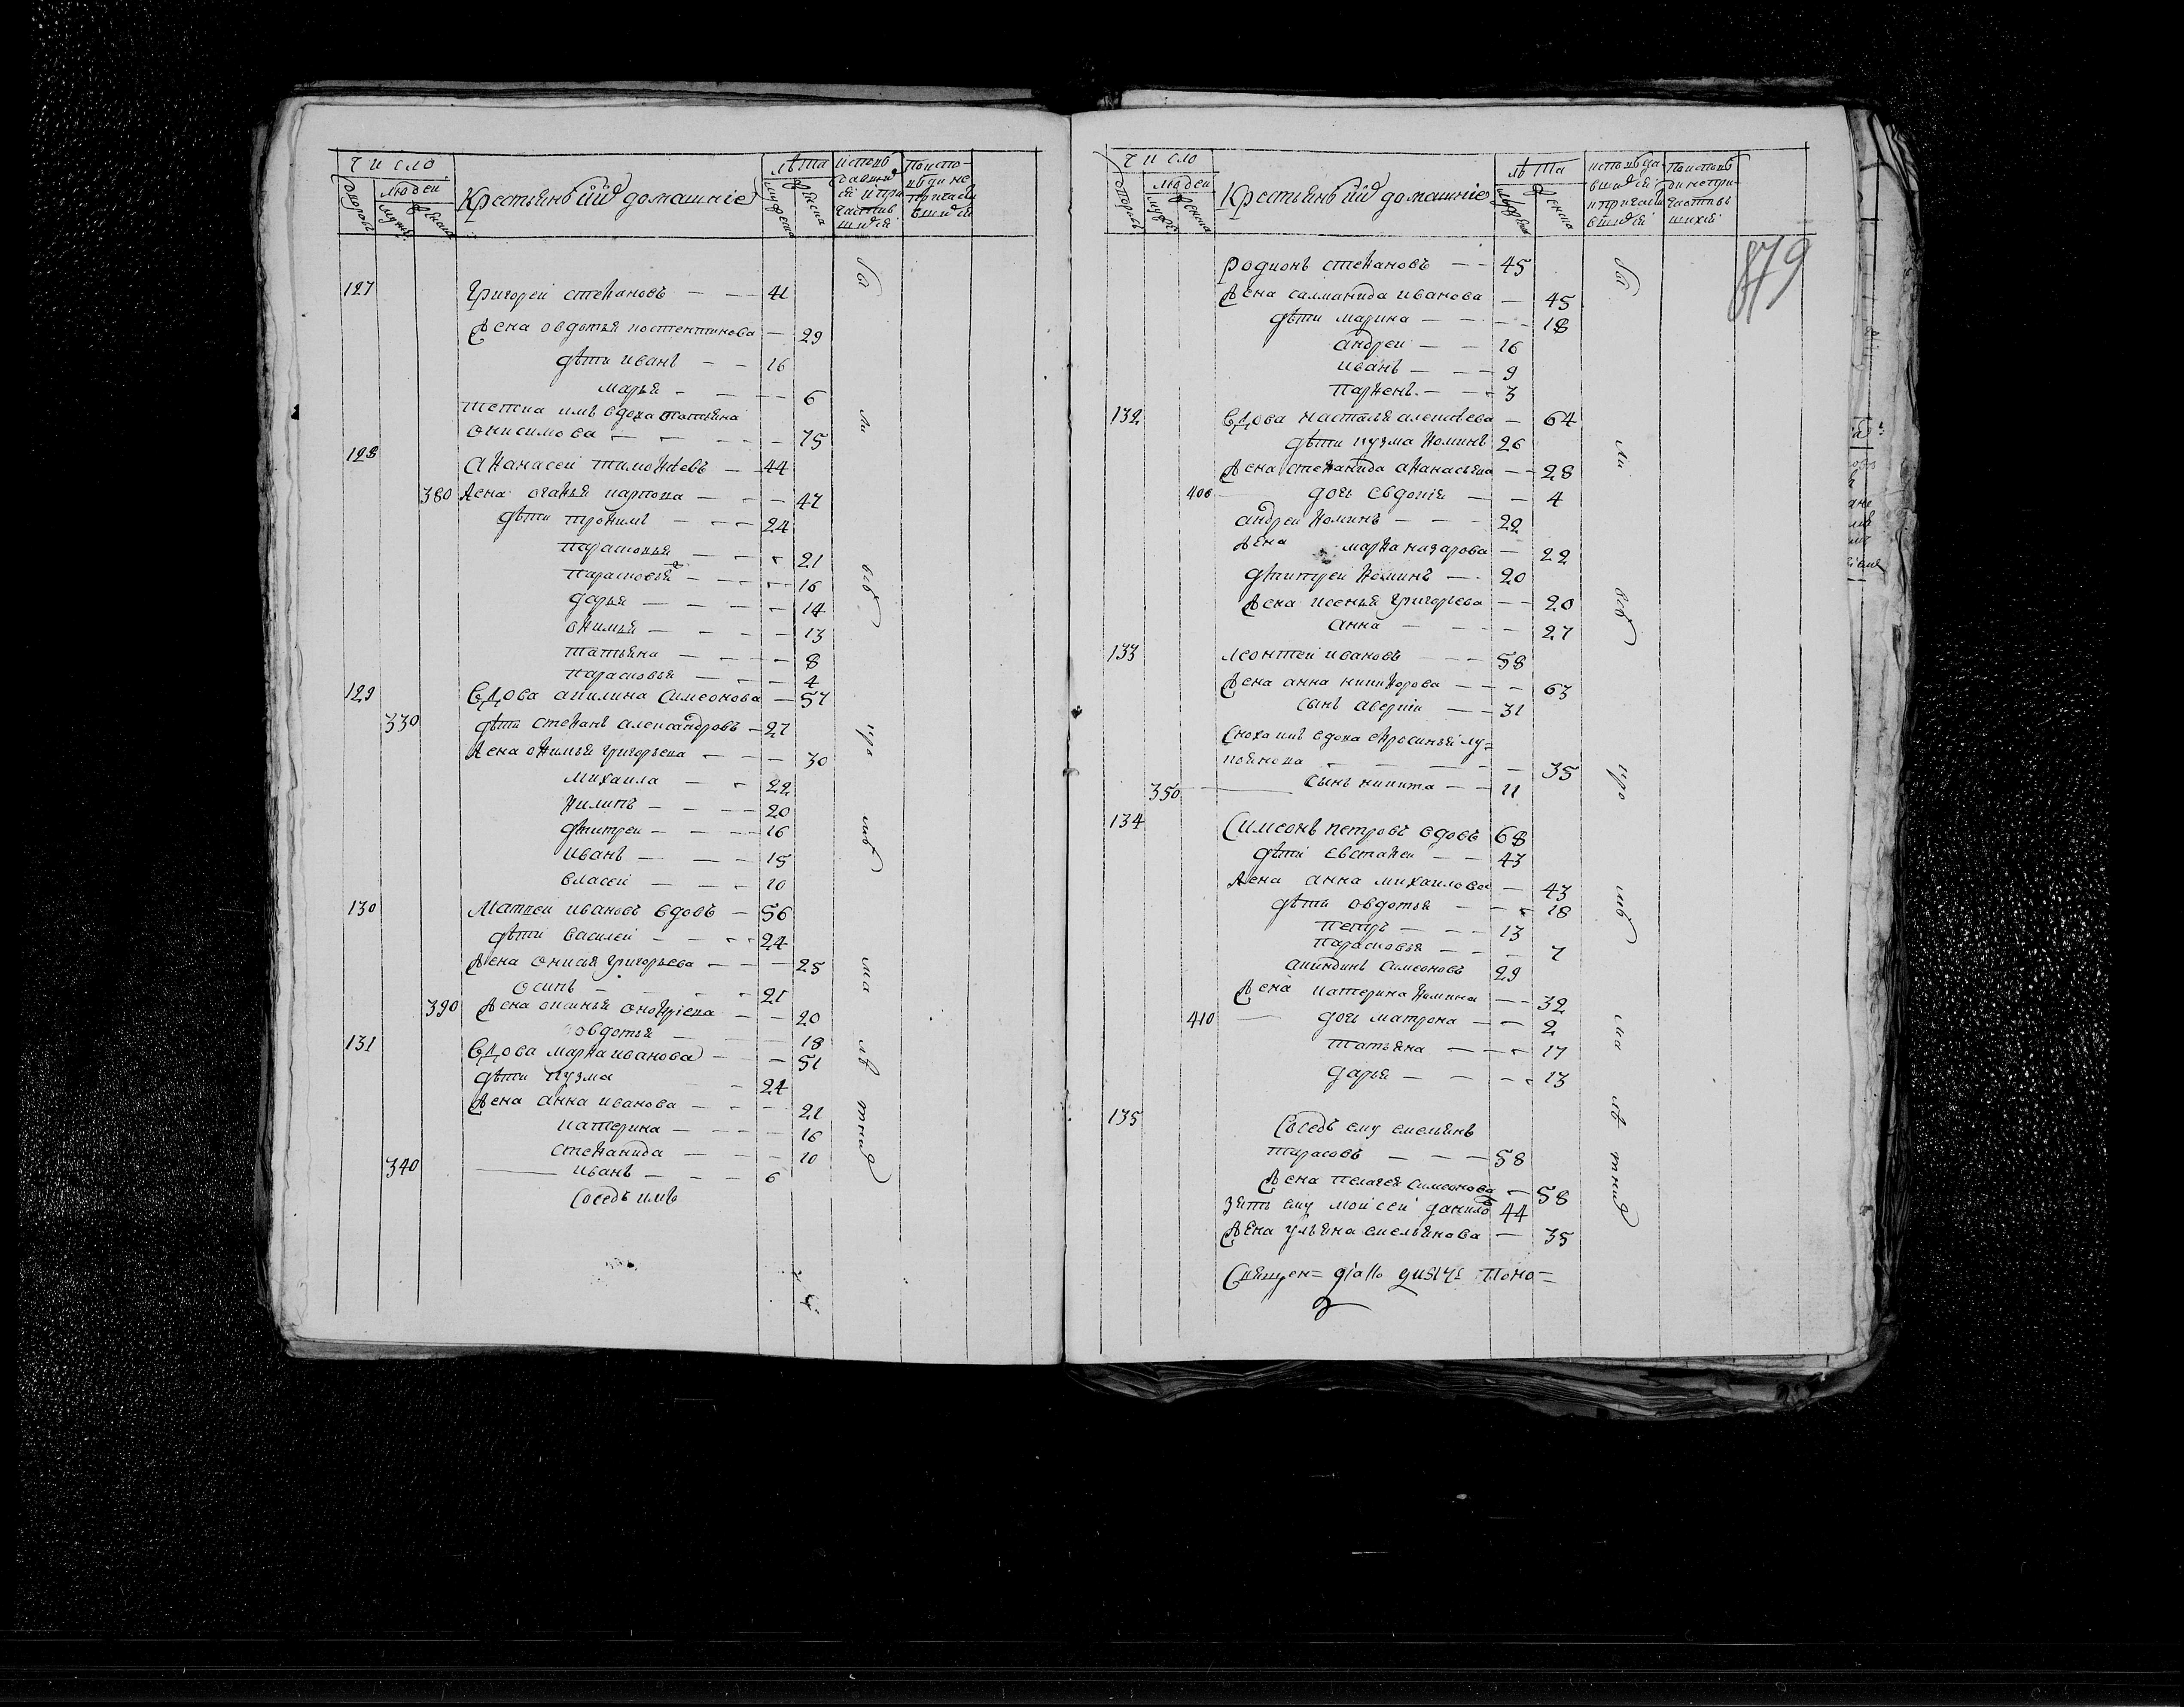 Число
Людей
Крестьянѣ и ихъ домашніе
Лѣта
127 Григореи стефановъ — — 41
Жена овдотья костентинова — 29
дѣти иванъ — — 16
марья — — — 6
тетка имъ вдова татьяна
онисимова — — — — 75
128 Афанасеи тимофѣевъ — 44
380 Жена огафья карпова — — — 47
дѣти трофимъ — — — 24
21
парасковья — — — 16
дарья — — — — 14
офимья — — — — 13
татьяна — — — — 8
парасковья — — — 4
129 Вдова акилина Симеонова — 57
330 дѣти стефанъ александровъ — 27
Жена офимья григорьева — — — 30
михаила — — 22
филипъ — — — 20
дмитреи — — — 16
иванъ — — — 15
власеи — — — 10
130 Матвеи ивановъ вдовъ — 56
дѣти василеи — — — 24
Жена григорьева — — — 25
осипъ — — — — 21
390 Жена онофріева — — 20
овдотья — — — 18
131 Вдова марфа иванова — — — 51
дѣти кузма — 24
Жена анна иванова — — — 21
катерина — — — — 16
стефанида — — — 10
340 иванъ — — — 6
Соседъ имъ
ва
ли
всѣ
кро
мѣ
ма
лѣ
тних
Число
Людей
Крестьянѣ и ихъ домашніе
Лѣта
879
родионъ стефановъ — — 45
Жена саламанида иванова — 45
дѣти марина — — — — 18
андреи — — 16
иванъ — — — 9
парфенъ — — — 3
132 Вдова настасья алексѣева — 64
дѣти кузма фоминъ 26
Жена стефанида афанасьева — — 28
400 дочь евдокія — — 4
андреи фоминъ — — — 22
Жена марфа назарова — 22
дмитреи фоминъ — — 20
Жена ксенья григорьева — — 20
анна — — — — 27
133 леонтеи ивановъ — — — 58
Жена анна никифорова — — — 63
сынъ аверкіи — — 31
Сноха имъ вдова ефросинья лу=
коянова — — — — — 35
350 сынъ никита — — 11
134 Симеонъ петровъ вдовъ 68
дѣти евстафеи — — 43
Жена анна михаилова — 43
дѣти овдотья — — — 18
петръ — — — 13
парасковья — — — 7
Симеоновъ 29
Жена катерина фомина — — 32
410 дочь матрона — — 2
татьяна — — — 17
дарья — — — — 13
135 Соседъ ему емельянъ
тарасовъ — — — 58
Жена пелагея Симеонова — 58
зять ему моисеи данилов 44
Жена ульяна емельянова — 35
ва
ли
всѣ
кро
мѣ
ма
лѣ
тних